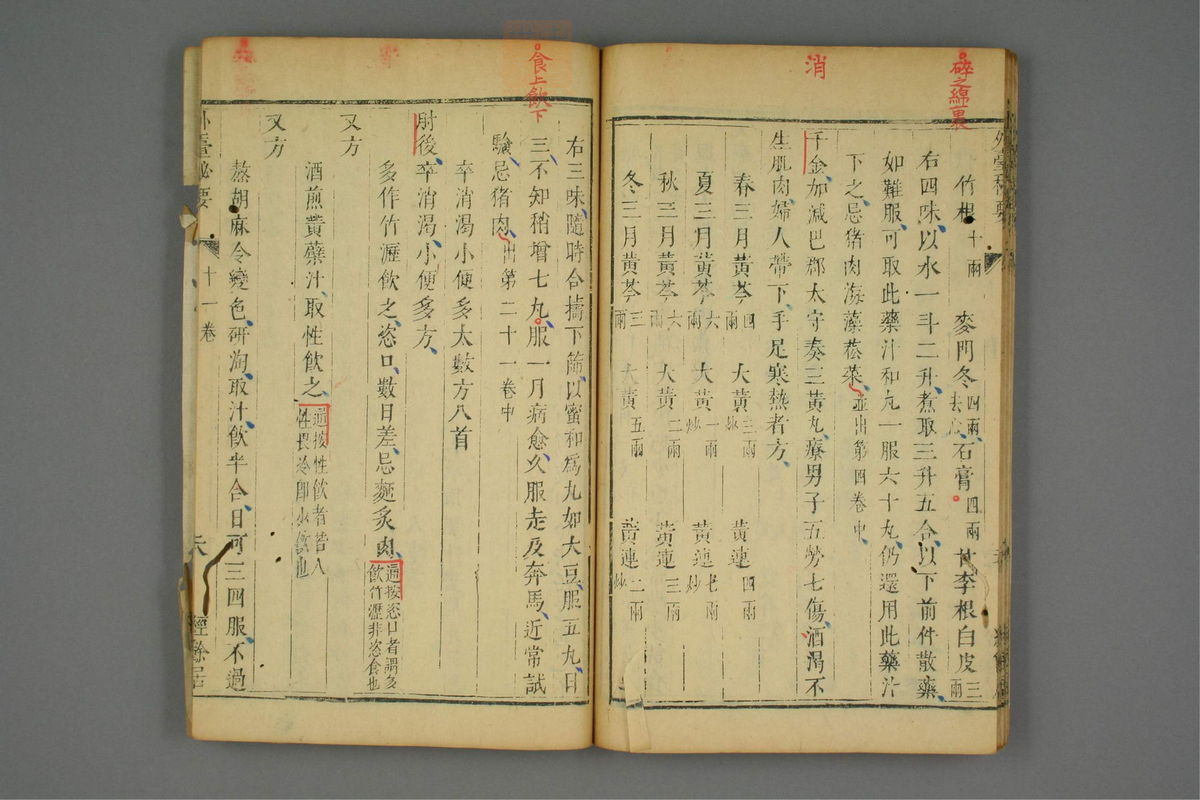 碎之綿裹
消
外臺秘要
竹根十兩 麥門冬四兩去心 石膏四兩 甘李根白皮三兩
右四味以水一斗二升煮取三升五合以下前件散藥
如難服可取此藥汁和丸一服六十丸仍還用此藥汁
下之忌猪肉海藻菘菜並出第四卷中
千金加減巴郡太守奏三黃丸療男子五勞七傷酒渴不
生肌肉婦人帶下手足寒熱者方
春三月黃芩四兩 大黃三兩炒 黃連四兩
夏三月黃芩六兩 大黃一兩炒 黃連七兩炒
秋三月黃芩六兩 大黃二兩 黃連三兩
冬三月黃芩三兩 大黃五兩 黃連二兩炒
食上飲下
右三味隨時合擣下篩以蜜和爲丸如大豆服五丸日
三不知稍增七丸服一月病愈久服走及奔馬近常試
驗忌猪肉出第二十一卷中
卒消渴小便多太數方八首
肘後卒消渴小便多方
多作竹瀝飲之恣口數日差忌麵炙肉遁按恣口者謂多飲竹瀝非恣食也
又方
酒煎黃蘗汁取性飲之遁按性飲者若人性畏冷即少飲也
又方
熬胡麻令變色研淘取汁飲半合日可三四服不過
外臺秘要 十一卷 經餘居